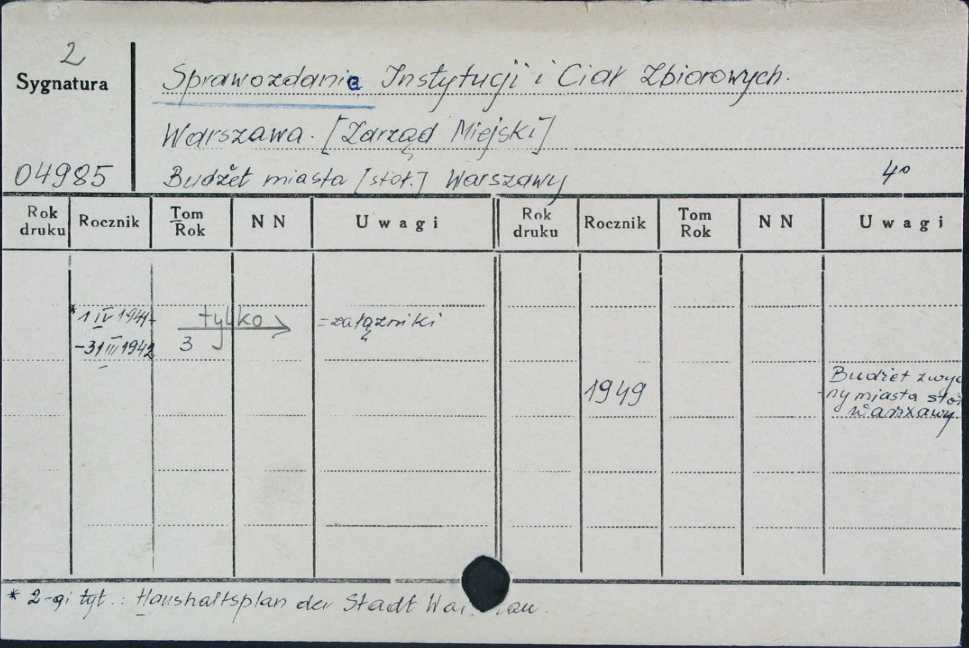 2
Sygnatura
Sprawozdanie Instytucji i Ciał Zbiorowych.
Warszawa. [Zarząd Miejski]
04985
Budżet miasta [stoł.] Warszawy
4°
Rok druku Rocznik Tom Rok NN Uwagi Rok druku Rocznik Tom Rok NN Uwagi
* 1 IV 1941- tylko = załączniki
-31 III 1942 3
1949 Budżet zwycz
ny miasta stoł
Warszawy.
* 2-gi tyt.: Haushaltsplan der Stadt